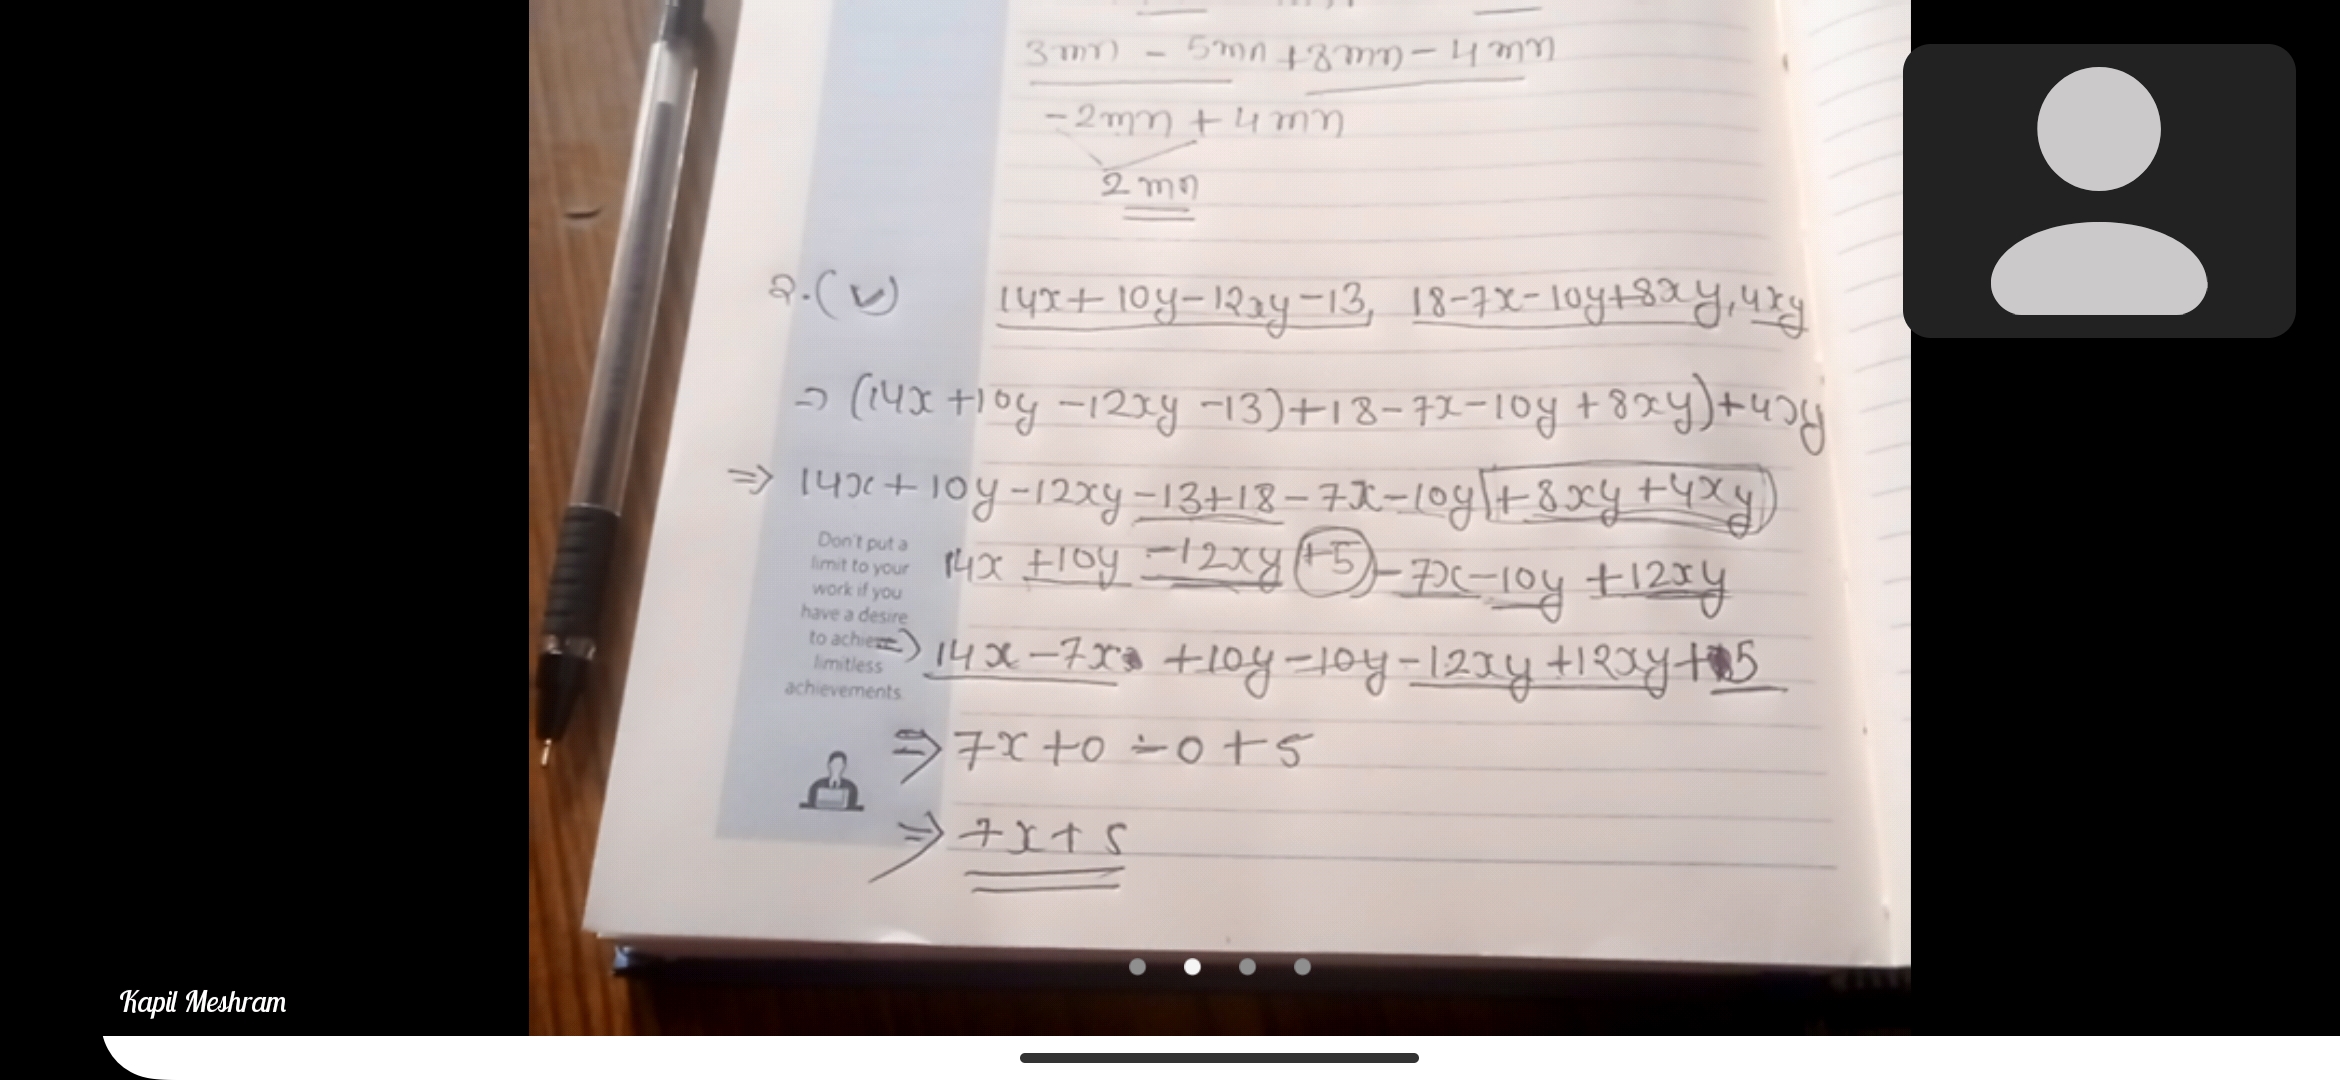 3mn - 5mn + 8mn - 4mn
-2mn + 4mn
2mn
2.(v) 14x + 10y - 12xy - 13, 18 - 7x - 10y + 8xy, 4xy
⇒ (14x + 10y - 12xy - 13) + 18 - 7x - 10y + 8xy) + 4xy
⇒ 14x + 10y - 12xy - 13 + 18 - 7x - 10y + 8xy + 4xy
14x + 10y - 12xy + 5 - 7x - 10y + 12xy
⇒ 14x - 7x + 10y - 10y - 12xy + 12xy + 5
⇒ 7x + 0 - 0 + 5
⇒ 7x + 5
Don't put a
limit to your
work if you
have a desire
to achieve
limitless
achievements.
Kapil Meshram